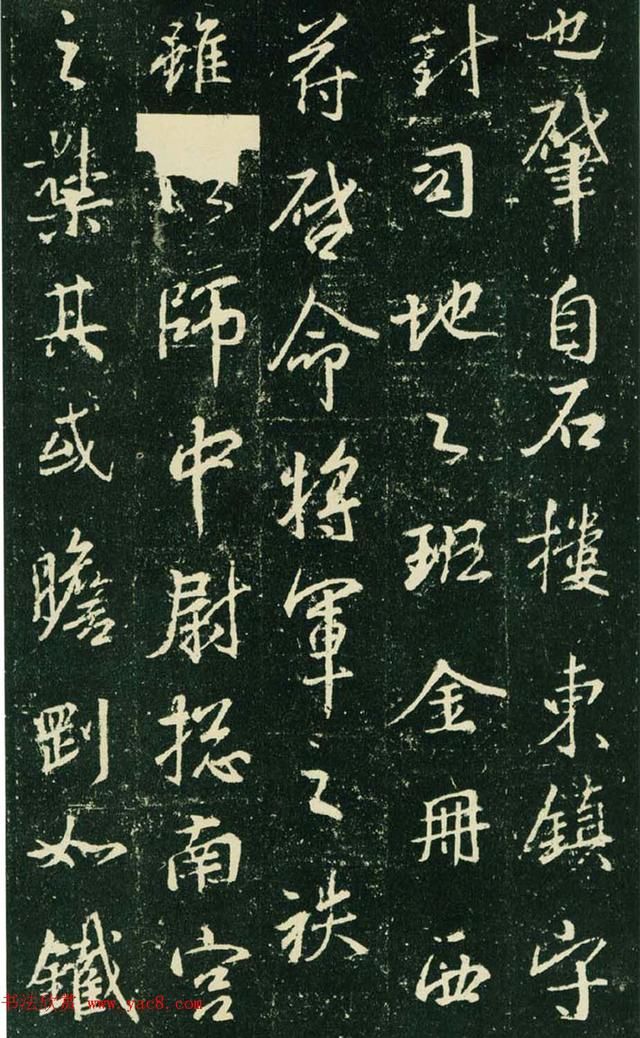 也肇自石樓東鎮守
封司地之班金冊西
符啓命將軍之袟
雖以師中尉揔南宮
之禁其或瞻劉如鐵
书法欣赏 www.yac8.com